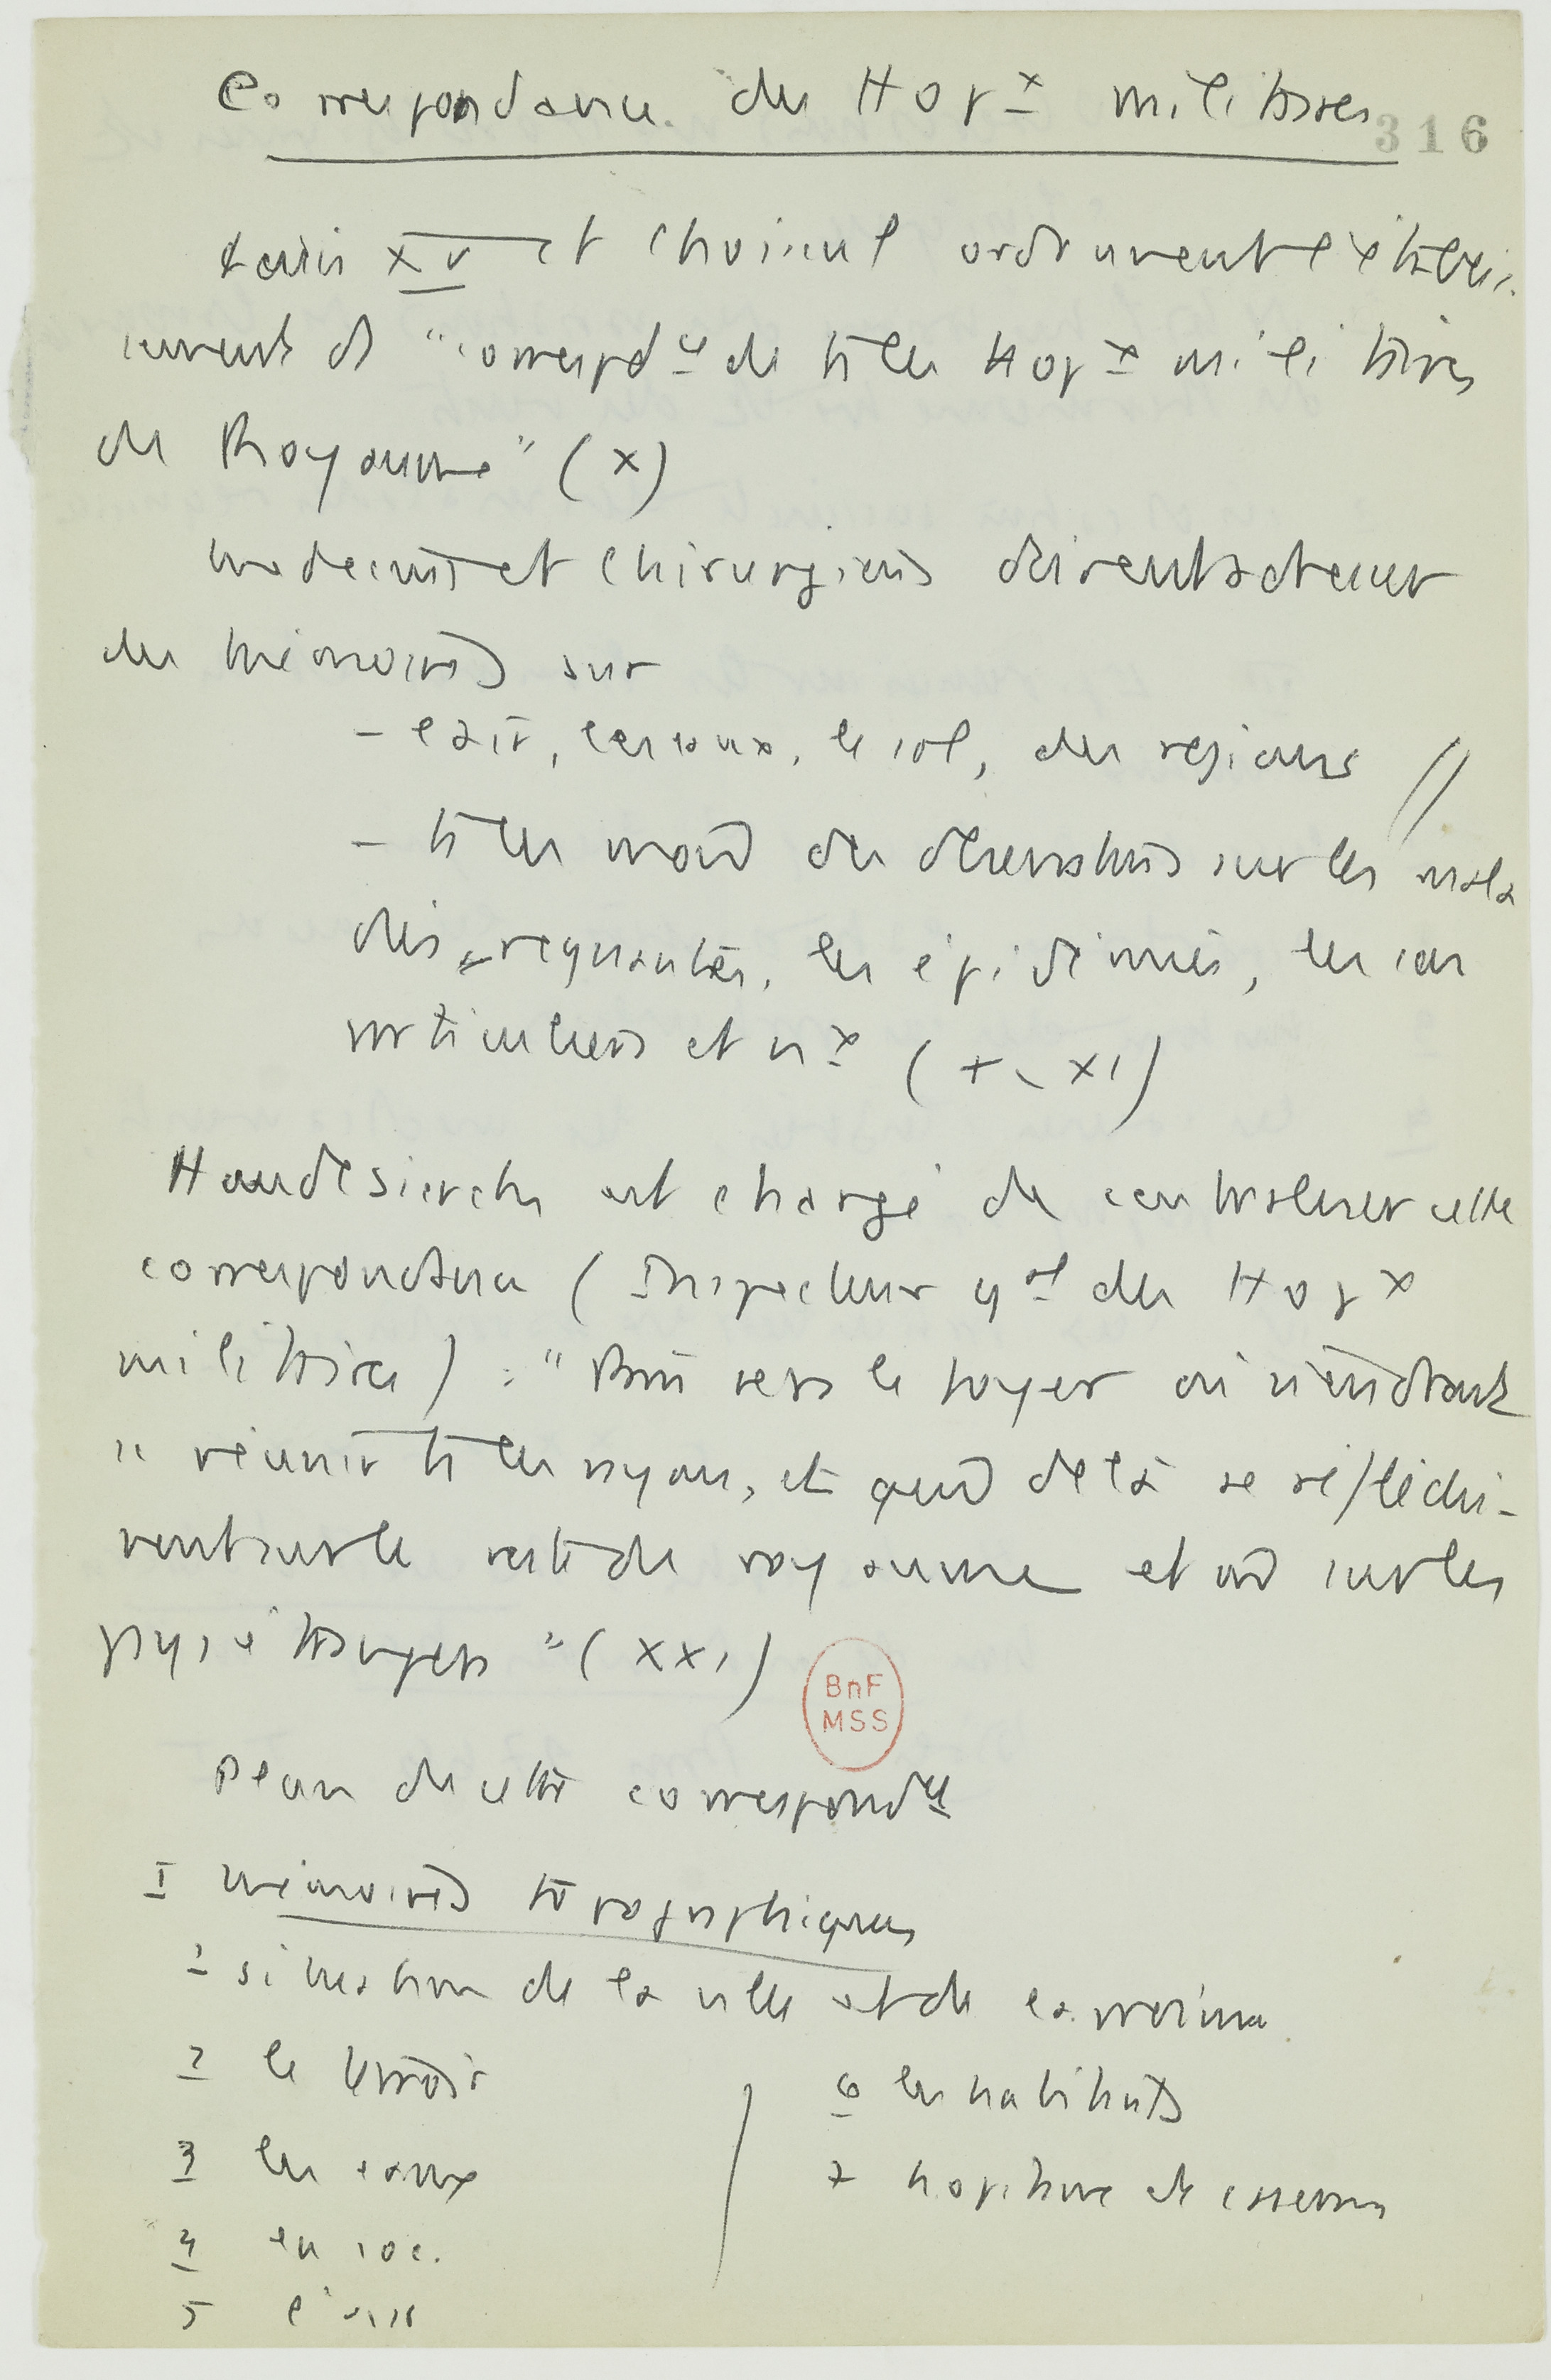 Correspondance des Hopx militaires
316
Louis XV et Choiseul ordonnent l'établis-
sement d "correspdce de ts les Hopx militaires
du Royaume" (X)
médecins et chirurgiens doivent adresser
des mémoires sur
- l'air, les eaux, le sol, des régions //
- ts les mois des observations sur les mala
dies régnantes, les épidémies, les cas
particuliers et nx (X-XI)
Hautesierck est chargé de centraliser cette
correspondance (Inspecteur gal des Hopx
militaires) : "Paris sera le foyer où viendront
" réunir ts les rayons, et qui de là se réfléchi-
ront sur le reste du royaume et sur les
pays étrangers" (XXI)
Plan de cette correspondce
I mémoires topographiques
1 situation de la ville et de la province
2 le terroir
3 les eaux
4 en soc.
5 l'air
6 les habitants
7 hopitaux et casernes
BnF
MSS